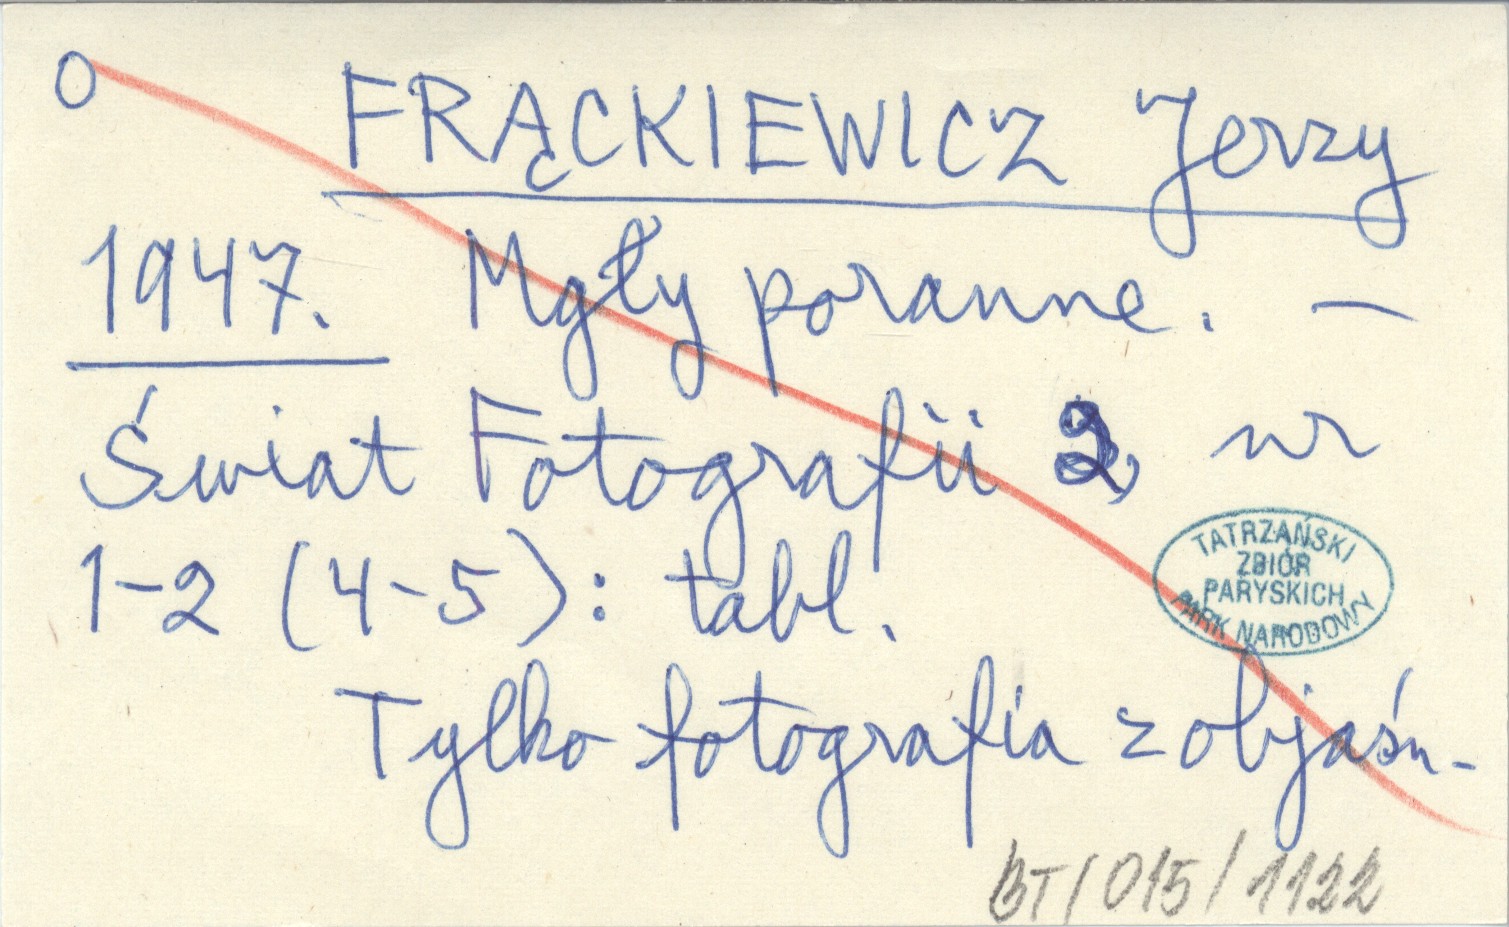 O
FRĄCKIEWICZ Jerzy
1947. Mgły poranne. —
Świat Fotografii 2, nr
1-2 (4-5): tabl.
TATRZAŃSKI
ZBIÓR
PARYSKICH
PARK NARODOWY
Tylko fotografia z objaśn-
BT/015/1122